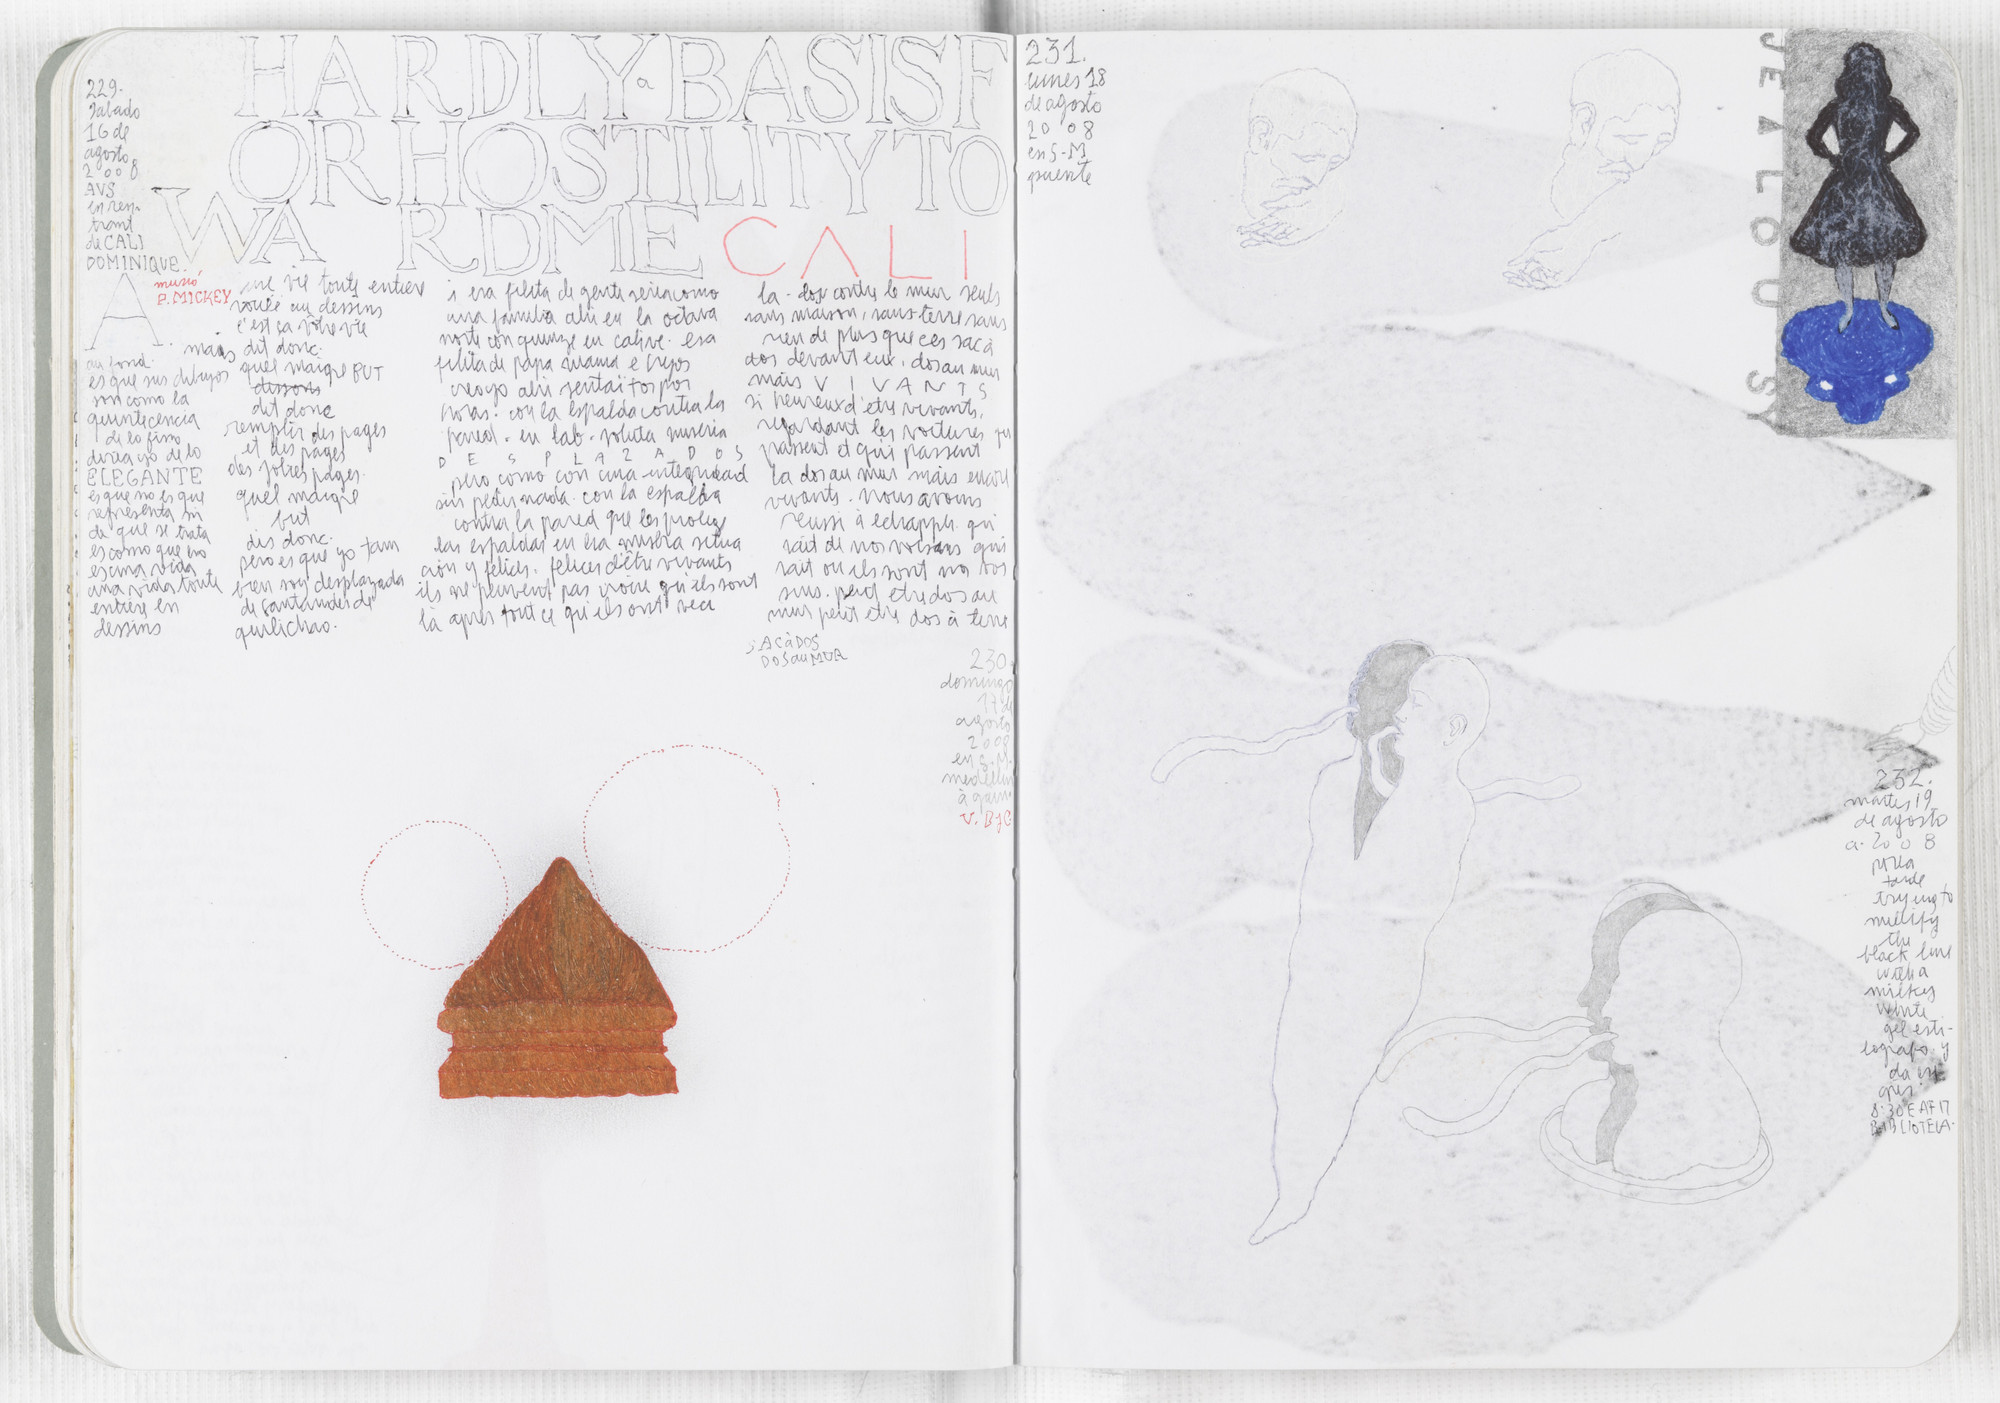 229.
sabado
16 de
agosto
2008
AVS
en ren-
trant
de CALI
DOMINIQUE.
HARDLY a BASIS F
OR HOSTILITY TO
WARD ME CALI
A
murió
P. MICKEY
au fond.
es que sus dibujos
son como la
quintecencia
de lo fino
diria yo de lo
ELEGANTE
es que no es que
representa ni
de que se trata
es como que eso
es una vida
una vida toute
entière en
dessins
une vie toute entiere
vouée au dessins
c'est ça vôtre vie
mais dit donc.
quel maigre BUT
dissons
dit donc
remplir des pages
et des pages
des jolies pages.
quel maigre
but
dis donc.
pero es que yo tam
bien soy desplazada
de santander de
quilichao.
i esa filita de gente seria como
una familia ahi en la octava
norte con quinze en calive. esa
filita de papa mama e hijos
creoyo ahi sentaitos por
horas. con la espalda contra la
pared. en lab. soluta miseria
D E S P L A Z A D O S
pero como con una integridad
sin pedir nada. con la espalda
contra la pared que les protege
las espaldas en esa misera situa
ción y felices. felices d'être vivants
ils ne peuvent pas croire qu'ils sont
là apres tout ce qu'ils ont vecu
la. dos contre le mur seuls
sans maison, sans terre sans
rien de plus que ces sac à
dos devant eux, dos au mur
mais V I V A N T S
si heureux d'etre vivants,
regardant les voitures qui
passent et qui passent
la dos au mur mais encore
vivants. nous avons
reussi à echapper. qui
sait de nos voisins qui
sait ou ils sont nos voi
sins. peut etre dos au
mur peut etre dos à terre
SAC à DOS
DOS au MUR
230.
domingo
17 de
agosto
2008
en S.M.
medellin
V. ByC
231.
lunes 18
de agosto
2008
en S-M
puente
JEALOUSY
232.
martes 19
de agosto
a. 2008
tarde
trying to
the
black line
with a
milky
white
gel esti-
lografo y
da un
gris.
8:30 EAFIT
BIBLIOTECA.